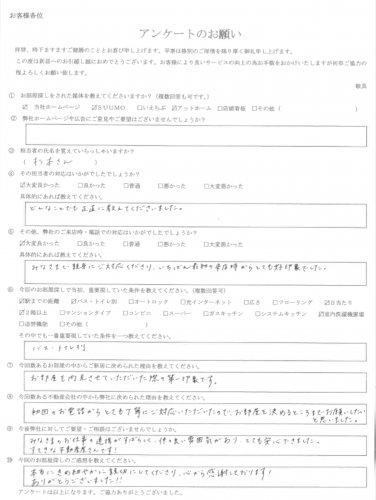 お客様各位
アンケートのお願い
拝啓、時下ますますご健勝のこととお喜び申し上げます。平素は格別のご厚情を賜り厚く御礼申し上げます。
この度は新居へのお引越し誠におめでとうございます。お客様により良いサービスの向上の為お手数をおかけいたしますが何卒ご協力の
程よろしくお願い致します。
敬具
① お部屋探しをされた媒体を教えてください（複数回答も可です。）
☑ 当社ホームページ ☑SUUMO □いえらぶ ☑アットホーム □店舗看板 □その他（ ）
② 弊社ホームページや広告にご意見やご要望はございませんでしょうか？
③ 担当者の氏名を覚えていらっしゃいますか？
（ 杉本さん ）
④ その担当者の対応はいかがでしたでしょうか？
☑大変良かった □良かった □普通 □悪かった □大変悪かった
具体的にあれば教えてください。
どんなことでも正直に教えてくださいました。
⑤ その他、弊社のご来店時・電話での対応はいかがでしたでしょうか？
☑大変良かった □良かった □普通 □悪かった □大変悪かった
具体的にあれば教えてください。
みなさまとても親身にご対応くださり、いちばん最初の来店時からとても好印象でした。
⑥ 今回のお部屋探しで当初、重要視していた条件を教えてください。（複数回答可）
☑駅までの距離 ☑バス・トイレ別 □オートロック □光インターネット □広さ □フローリング ☑日当たり
☑2階以上 □マンションタイプ □コンビニ □スーパー □ガスキッチン □システムキッチン ☑室内洗濯機置場
□追焚機能 □その他（ ）
その中でも一番重要視していた条件を一つ教えてください。
バス・トイレ別
⑦ 今回数あるお部屋の中からご新居に決められた理由を教えてください。
お部屋を内見させていただいた際の第一印象です。
⑧ 今回数ある不動産会社の中から弊社に決められた理由を教えてください。
初回のお電話からとても丁寧にご対応いただいたので、お部屋を決めるところまでお願いしたい
と思いました。
⑨ 今後弊社に対してご要望・ご相談はございませんでしょうか。
みなさまのお仕事の連携がすばらしく、仲の良い雰囲気があり、とても安心できました。
すてきな不動産屋さんです！
⑩ 今回のお部屋探しのご感想を教えてください。
本当にきめ細やかに親切にしてくださり、心から感謝しております！
ありがとうございました!!
アンケートは以上になります。ご協力ありがとうございました。